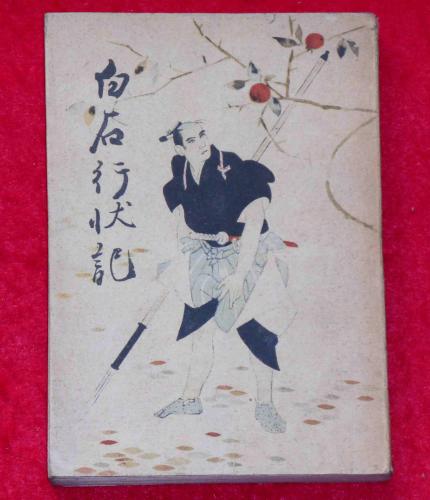 白石行状記